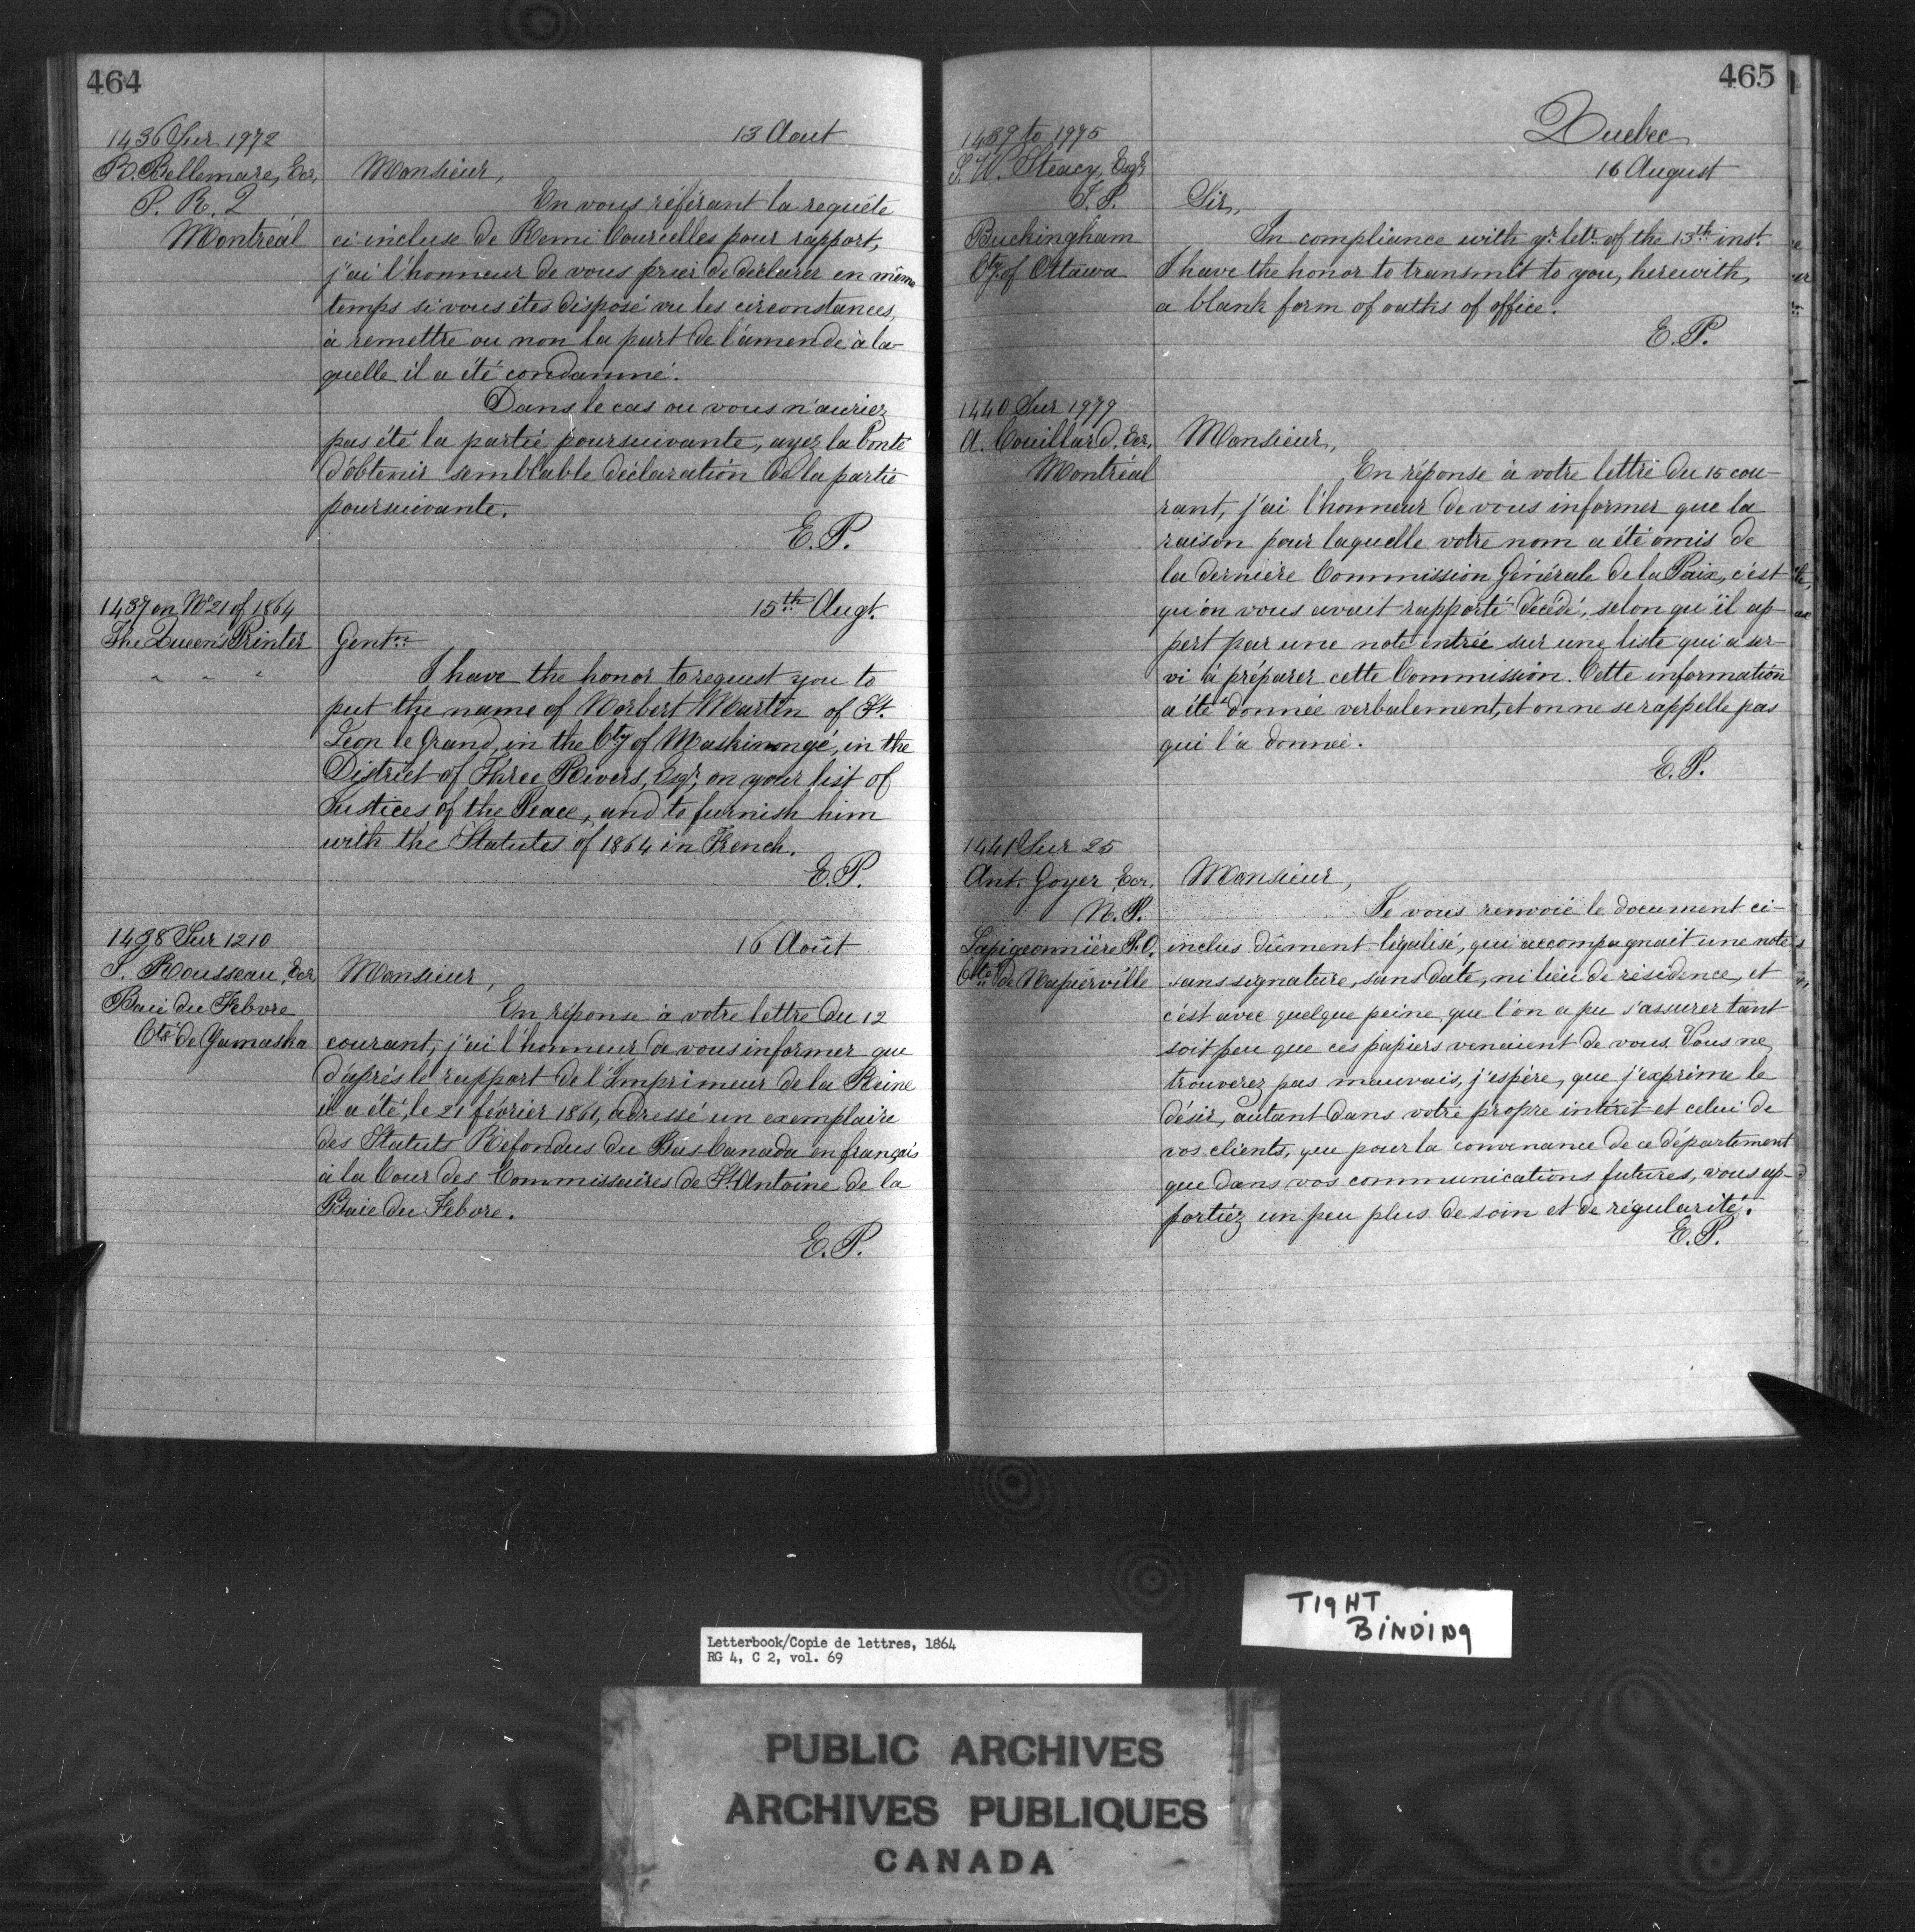 464
1436 Sur 1972
13 Aout
R. Bellemare, Ecr,
P. R. I
Montréal
Monsieur,
En vous référant la requête
ci-incluse de Remi Courcelles pour rapport,
j'ai l'honneur de vous prier de déclarer en même
temps si vous êtes disposé vu les circonstances,
à remettre ou non la part de l'amende à la-
quelle il a été condamné.
Dans le cas ou vous n'auriez
pas été la partie poursuivante, ayez la bonté
d'obtenir semblable déclaration de la partie
poursuivante.
E. P.
1437 on No 21 of 1864
15th Augt.
The Queen's Printer
" " "
Gentn
I have the honor to request you to
put the name of Norbert Martin of St.
Leon le Grand, in the Cty of Maskinongé, in the
District of Three Rivers, Esqr, on your list of
Justices of the Peace, and to furnish him
with the Statutes of 1864 in French.
E. P.
1438 Sur 1210
16 Août
J. Rousseau, Ecr
Baie du Febvre
Cté de Yamaska
Monsieur,
En réponse à votre lettre du 12
courant, j'ai l'honneur de vous informer que
d'après le rapport de l'Imprimeur de la Reine
il a été, le 21 février 1861, adressé un exemplaire
des Statuts Refondus du Bas Canada en français
à la Cour des Commissaires de St. Antoine de la
Baie du Febvre.
E. P.
465
Quebec
1439 to 1975
16 August
S. W. Steacy, Esqr
J. P.
Buckingham
Cty. of Ottawa
Sir,
In compliance with yr. letr. of the 13th inst.
I have the honor to transmit to you, herewith,
a blank form of oaths of office.
E. P.
1440 Sur 1979
A. Couillard, Ecr,
Montréal
Monsieur,
En réponse à votre lettre du 15 cou-
rant, j'ai l'honneur de vous informer que la
raison pour laquelle votre nom a été omis de
la dernière Commission Générale de la Paix, c'est
qu'on vous avait rapporté décédé, selon qu'il ap-
pert par une note entrée sur une liste qui a ser-
vi à préparer cette Commission. Cette information
a été donnée verbalement, et on ne se rappelle pas
qui l'a donnée.
E. P.
1441 Sur 25
Ant. Goyer, Ecr,
N. P.
Lapigeonnière P.O.
Cté de Napierville
Monsieur,
Je vous renvoie le document ci-
inclus dûment légalisé, qui accompagnait une note
sans signature, sans date, ni lieu de résidence, et
c'est avec quelque peine que l'on a pu s'assurer tant
soit peu que ces papiers venaient de vous. Vous ne
trouverez pas mauvais, j'espère, que j'exprime le
désir, autant dans votre propre intérêt et celui de
vos clients, que pour la convenance de ce département
que dans vos communications futures, vous ap-
portiez un peu plus de soin et de régularité.
E. P.
TIGHT
BINDING
Letterbook/Copie de lettres, 1864
RG 4, C 2, vol. 69
PUBLIC ARCHIVES
ARCHIVES PUBLIQUES
CANADA